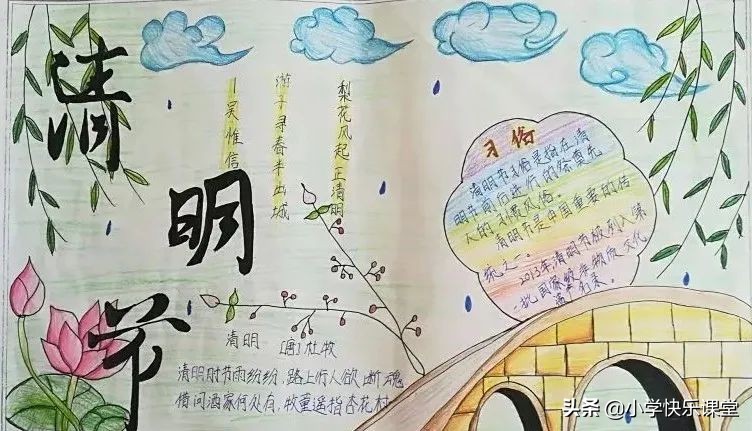 清
明
节
梨花风起正清明
游子寻春半出城
—吴惟信
习俗
清明节习俗是指在清
明节期间进行的祭奠先
人的风俗。
清明节是中国重要的传
统之一。
2013年清明节被列入第
一批国家级非物质文化
遗产名录。
清明 [唐]杜牧
清明时节雨纷纷，路上行人欲断魂
借问酒家何处有，牧童遥指杏花村
头条 @小学快乐课堂